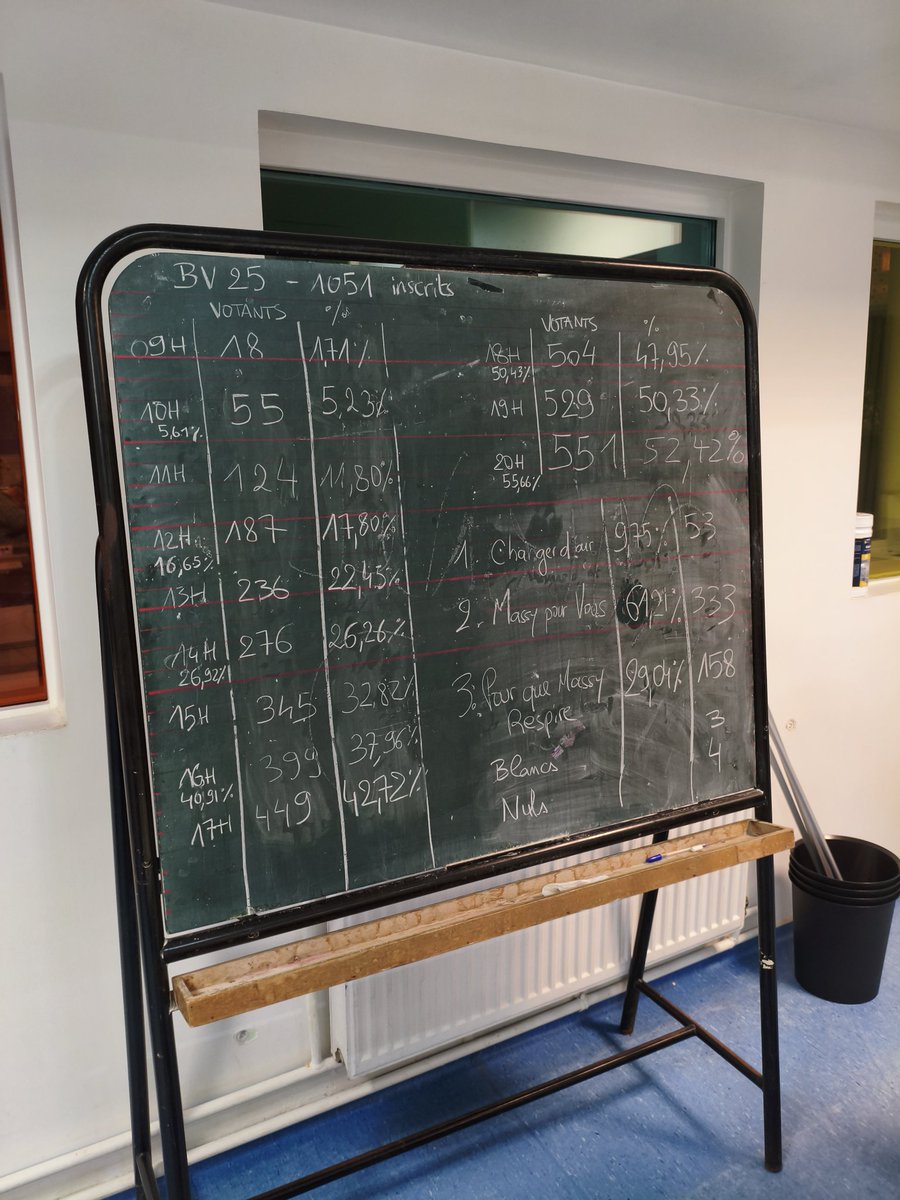 BV 25 - 1051 inscrits
VOTANTS %
09H 18 1,71%
10H 55 5,23%
5,61%
11H 124 11,80%
12H 187 17,80%
16,65%
13H 236 22,45%
14H 276 26,26%
26,92%
15H 345 32,82%
16H 399 37,96%
40,91%
17H 449 42,72%
VOTANTS %
18H 504 47,95%
50,43%
19H 529 50,33%
20H 551 52,42%
55,66%
1. Changer d'air 9,75% 53
2. Massy pour Vous 61,21% 333
3. Pour que Massy 29,04% 158
Respire
Blancs 3
Nuls 4